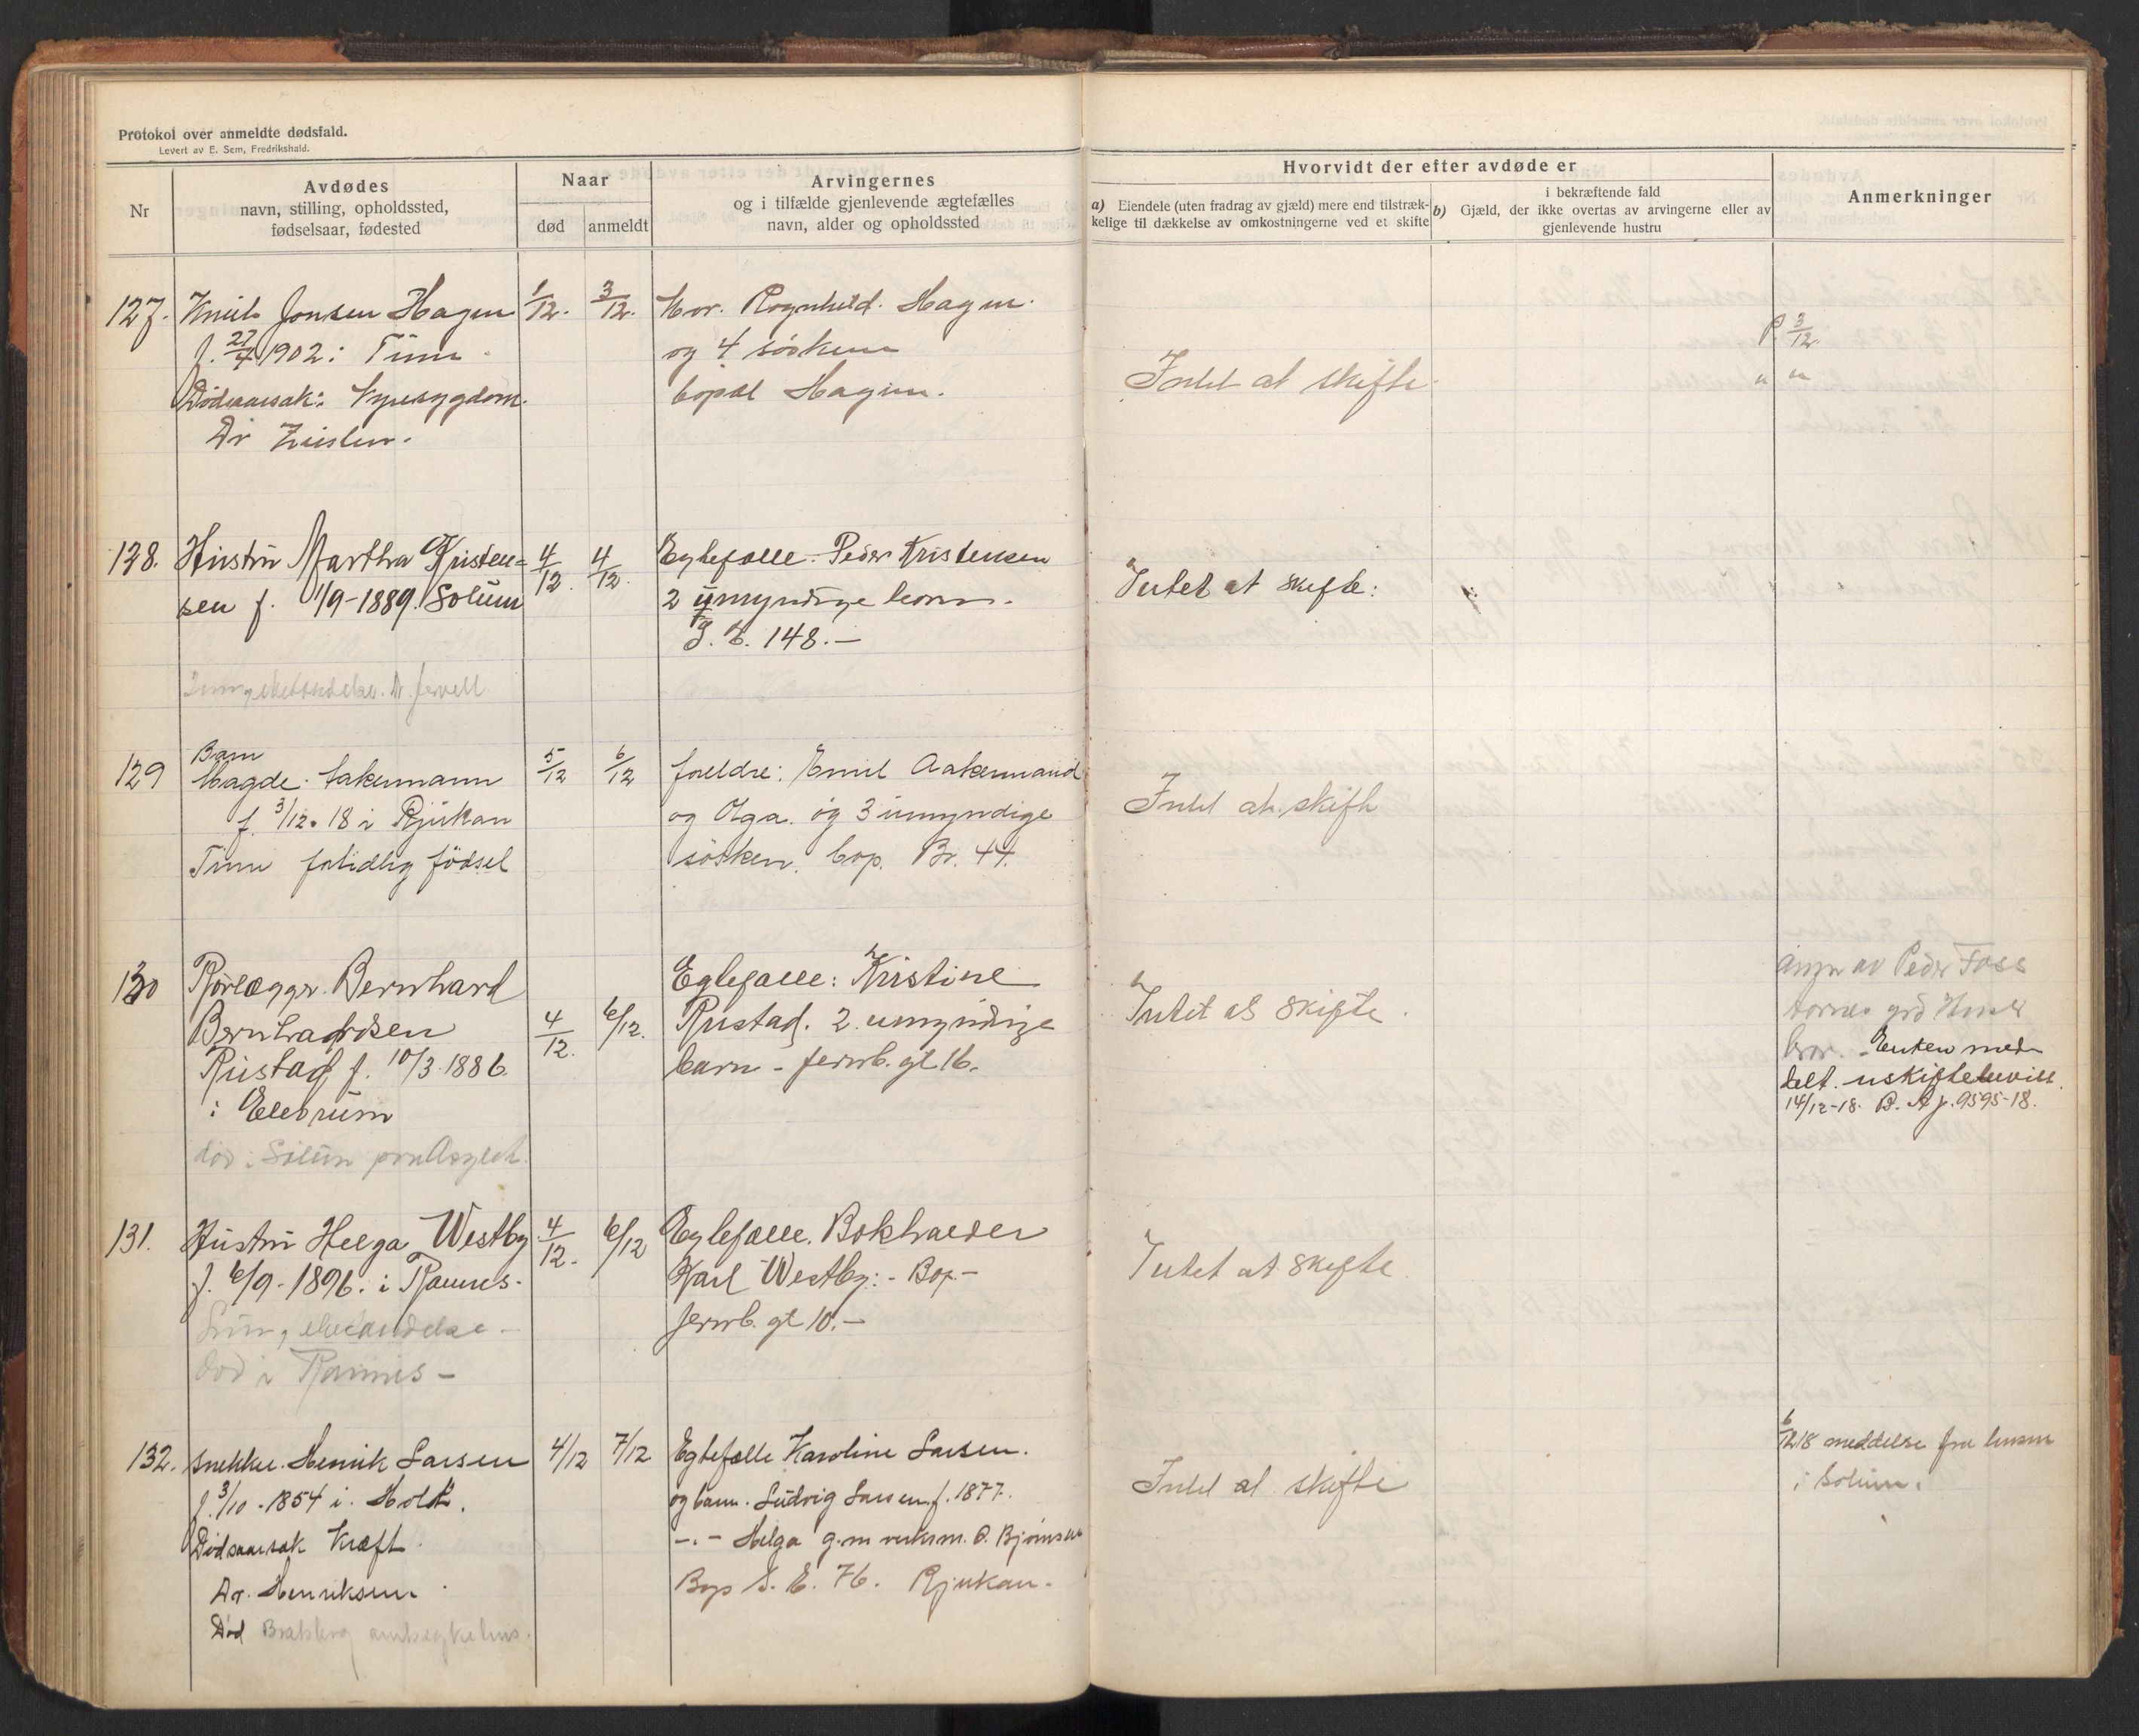 Protokol over anmeldte dødsfald.
Levert av E. Sem, Fredrikshald.
Nr
Avdødes
navn, stilling, opholdssted,
fødselsaar, fødested
Naar
død
anmeldt
Arvingernes
og i tilfælde gjenlevende ægtefælles
navn, alder og opholdssted
Hvorvidt der efter avdøde er
a) Eiendele (uten fradrag av gjæld) mere end tilstræk-
kelige til dækkelse av omkostningerne ved et skifte
b) i bekræftende fald
Gjæld, der ikke overtas av arvingerne eller av
gjenlevende hustru
Anmerkninger
127. Knut Jonsen Hagen
f. 27/4 1902 i Tinn
Dødsaarsak: Nyresygdom.
Dr
1/12. 3/12.
Mor. Rognhild. Hagen.
og 4 søsken
bopæl Hagen.
Intet at skifte
P. 3/12
" "
128. Hustru Martha Kristen=
sen f. 1/9-1889. Solum
4/12. 4/12.
Egtefælle. Peder Kristensen
2 umyndige barn.
148.-
Intet at skifte:
Dr. Jervell
129 Barn
Magde. Aakermann
f. 3/12. 18 i Rjukan
Tinn fortidlig fødsel
5/12 6/12
foreldre: Emil Aakermand
og Olga. og 3 umyndige
søsken. bop. Br. 44.
Intet at skifte
130 Rørlægger. Bernhard
Bernhardsen
Rustad f. 10/3 1886
i Elverum
død i Solum
4/12. 6/12.
Egtefælle: Kristine
Rustad. 2 umyndige
barn - jernb. gt 16.
Intet at skifte.
anm av Peder Foss
bror. - Enken med-
delt. uskiftebevill.
14/12-18. 9595-18.
131. Hustru Helga Westby
f. 6/9-1896. i Ramnes.
Lungebetændelse -
død i Ramnes -
4/12. 6/12
Egtefælle. Bokholder
Karl Westby: - Bop. -
Jernb. gt 10. -
Intet at skifte.
132. snekker. Henrik Larsen
f. 3/10-1854 i. Holt.
Dødsaarsak Kræft.
Dr. Henriksen
Død Bratsberg amtssykehus.
4/12 7/12
Egtefælle Karoline Larsen.
og barn. Ludvig Larsen f. 1877.
-.- Helga g.m verksm. O. Bjørnsen
Bop S. E. 76. Rjukan.
Intet at skifte
6/12 18 meddelse fra lensm
i Solum.